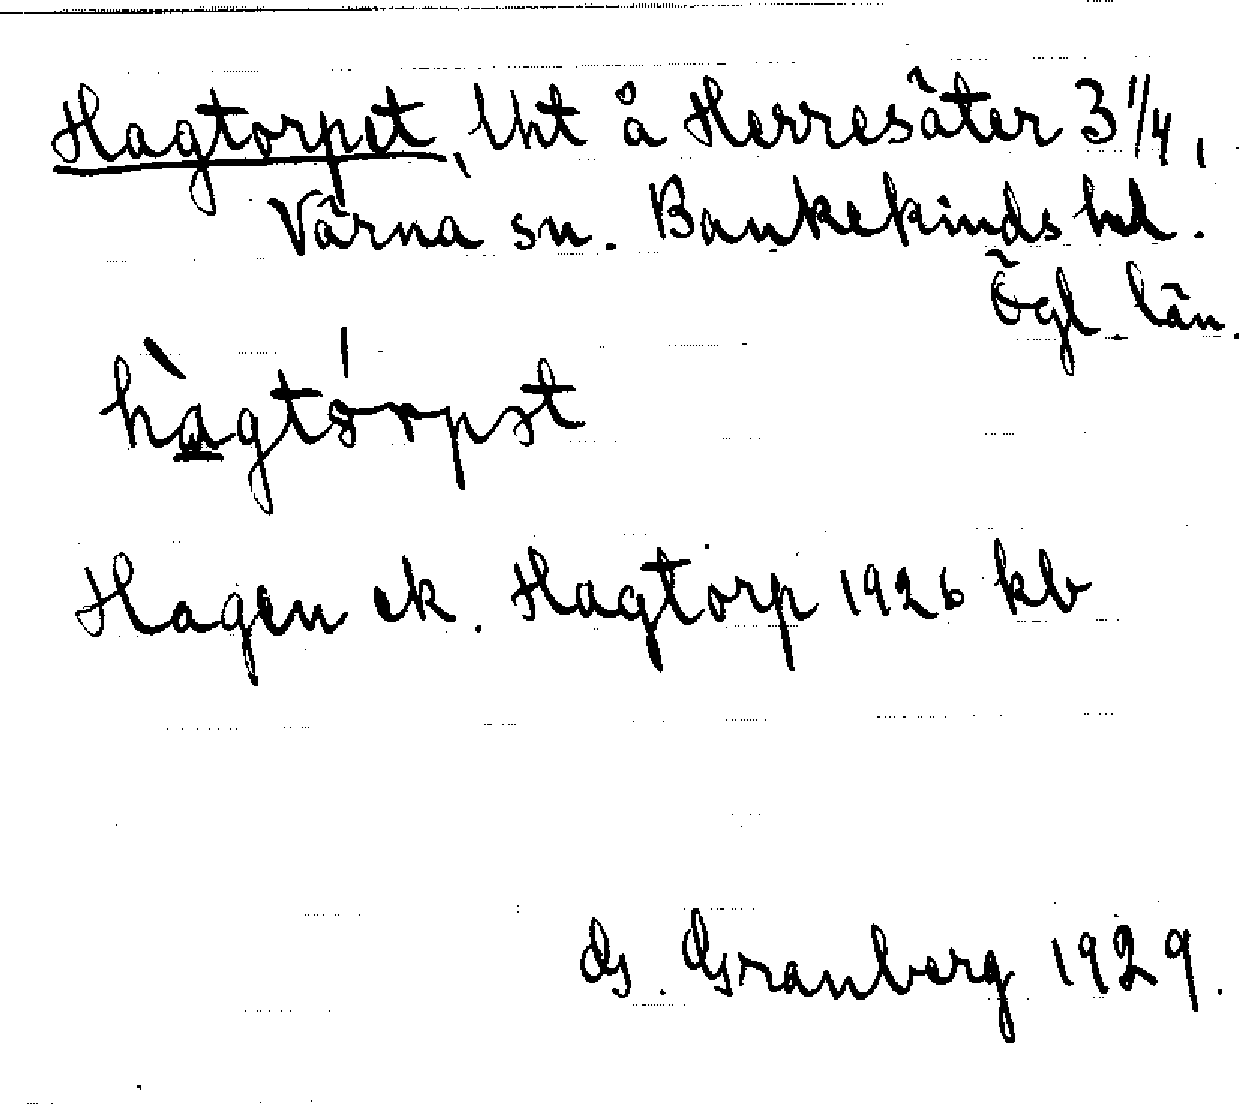 Hagtorpet, lht å Herresäter 3 1/4,
Värna sn. Bankekinds hd.
Ögl. län.
hàgtórpət
Hagen ek. Hagtorp 1926 kb
G. Granberg 1929.